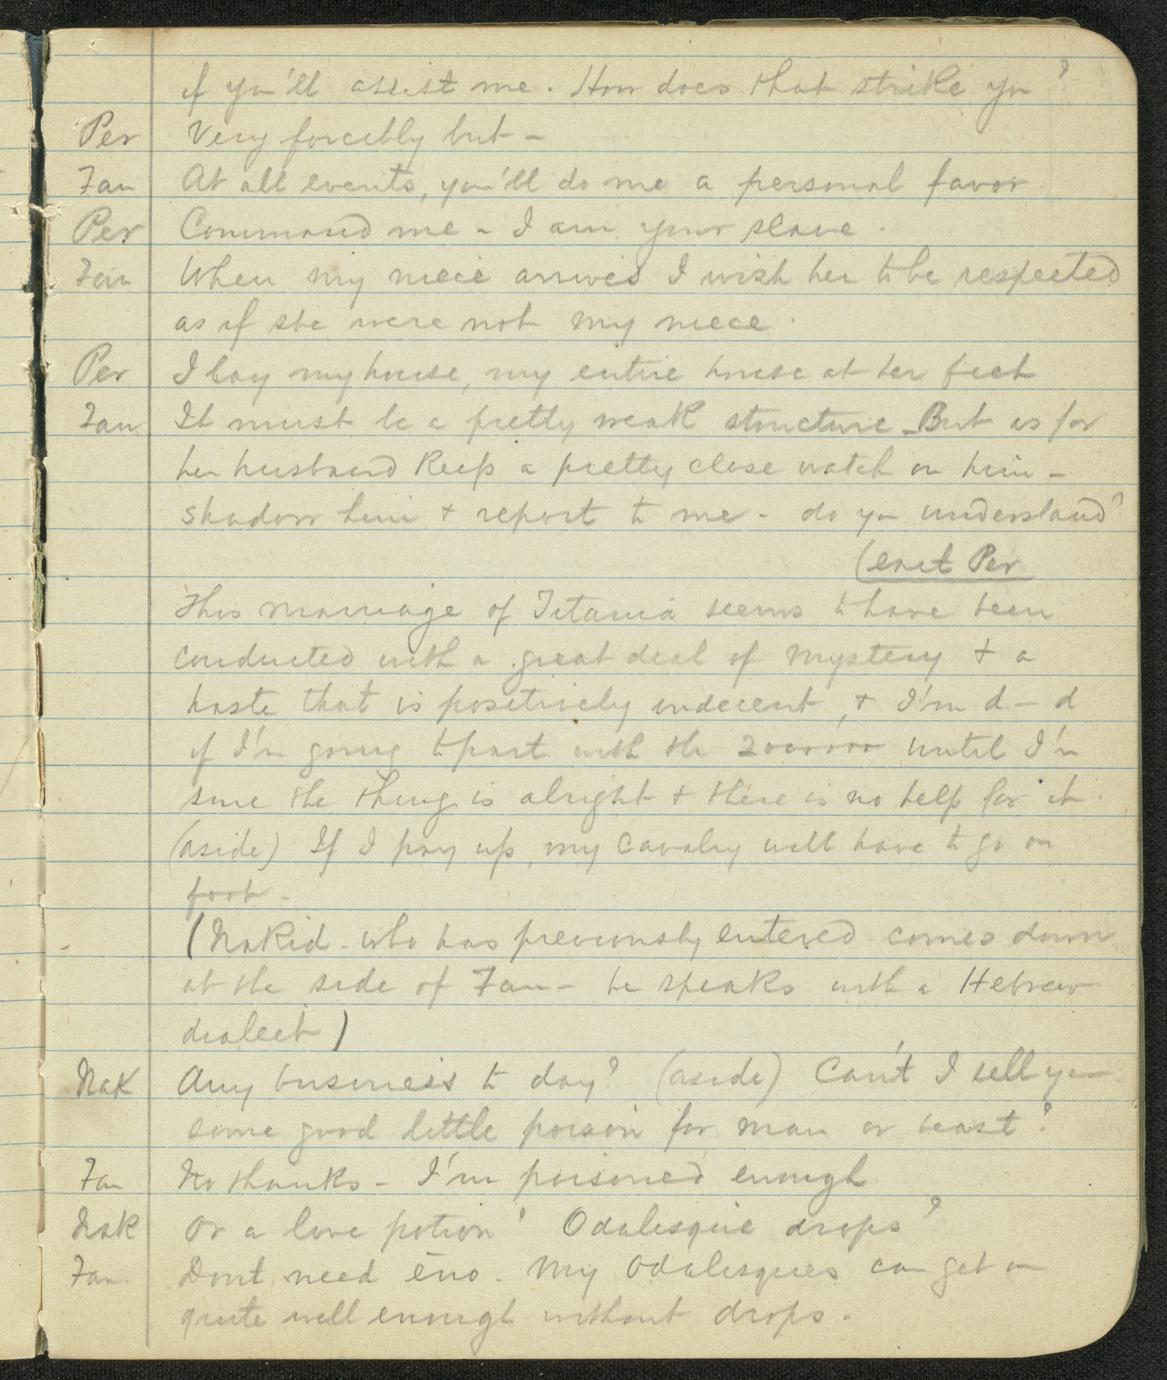 if you'll assist me. How does that strike you?
Per Very forcibly but -
Fan At all events, you'll do me a personal favor
Per Command me - I am your slave.
Fan When my niece arrives I wish her to be respected
as if she were not my niece.
Per I lay my house, my entire house at her feet
Fan It must be a pretty weak structure - But as for
her husband keep a pretty close watch on him -
shadow him & report to me - do you understand?
(exit Per
This marriage of Titania seems to have been
conducted with a great deal of mystery & a
haste that is positively indecent, & I'm d - d
if I'm going to part with the 2000000 until I'm
sure the thing is alright & there is no help for it.
(aside) If I pay up, my cavalry will have to go on
foot -
(Nakid - who has previously entered comes down
at the side of Fan - he speaks with a Hebrew
dialect)
Nak Any business to day? (aside) Can't I sell you
some good little poison for man or beast?
Fan No thanks - I'm poisoned enough
Nak Or a love potion? Odalesque drops?
Fan Dont need ēno. My Odalesques can get on
quite well enough without drops.